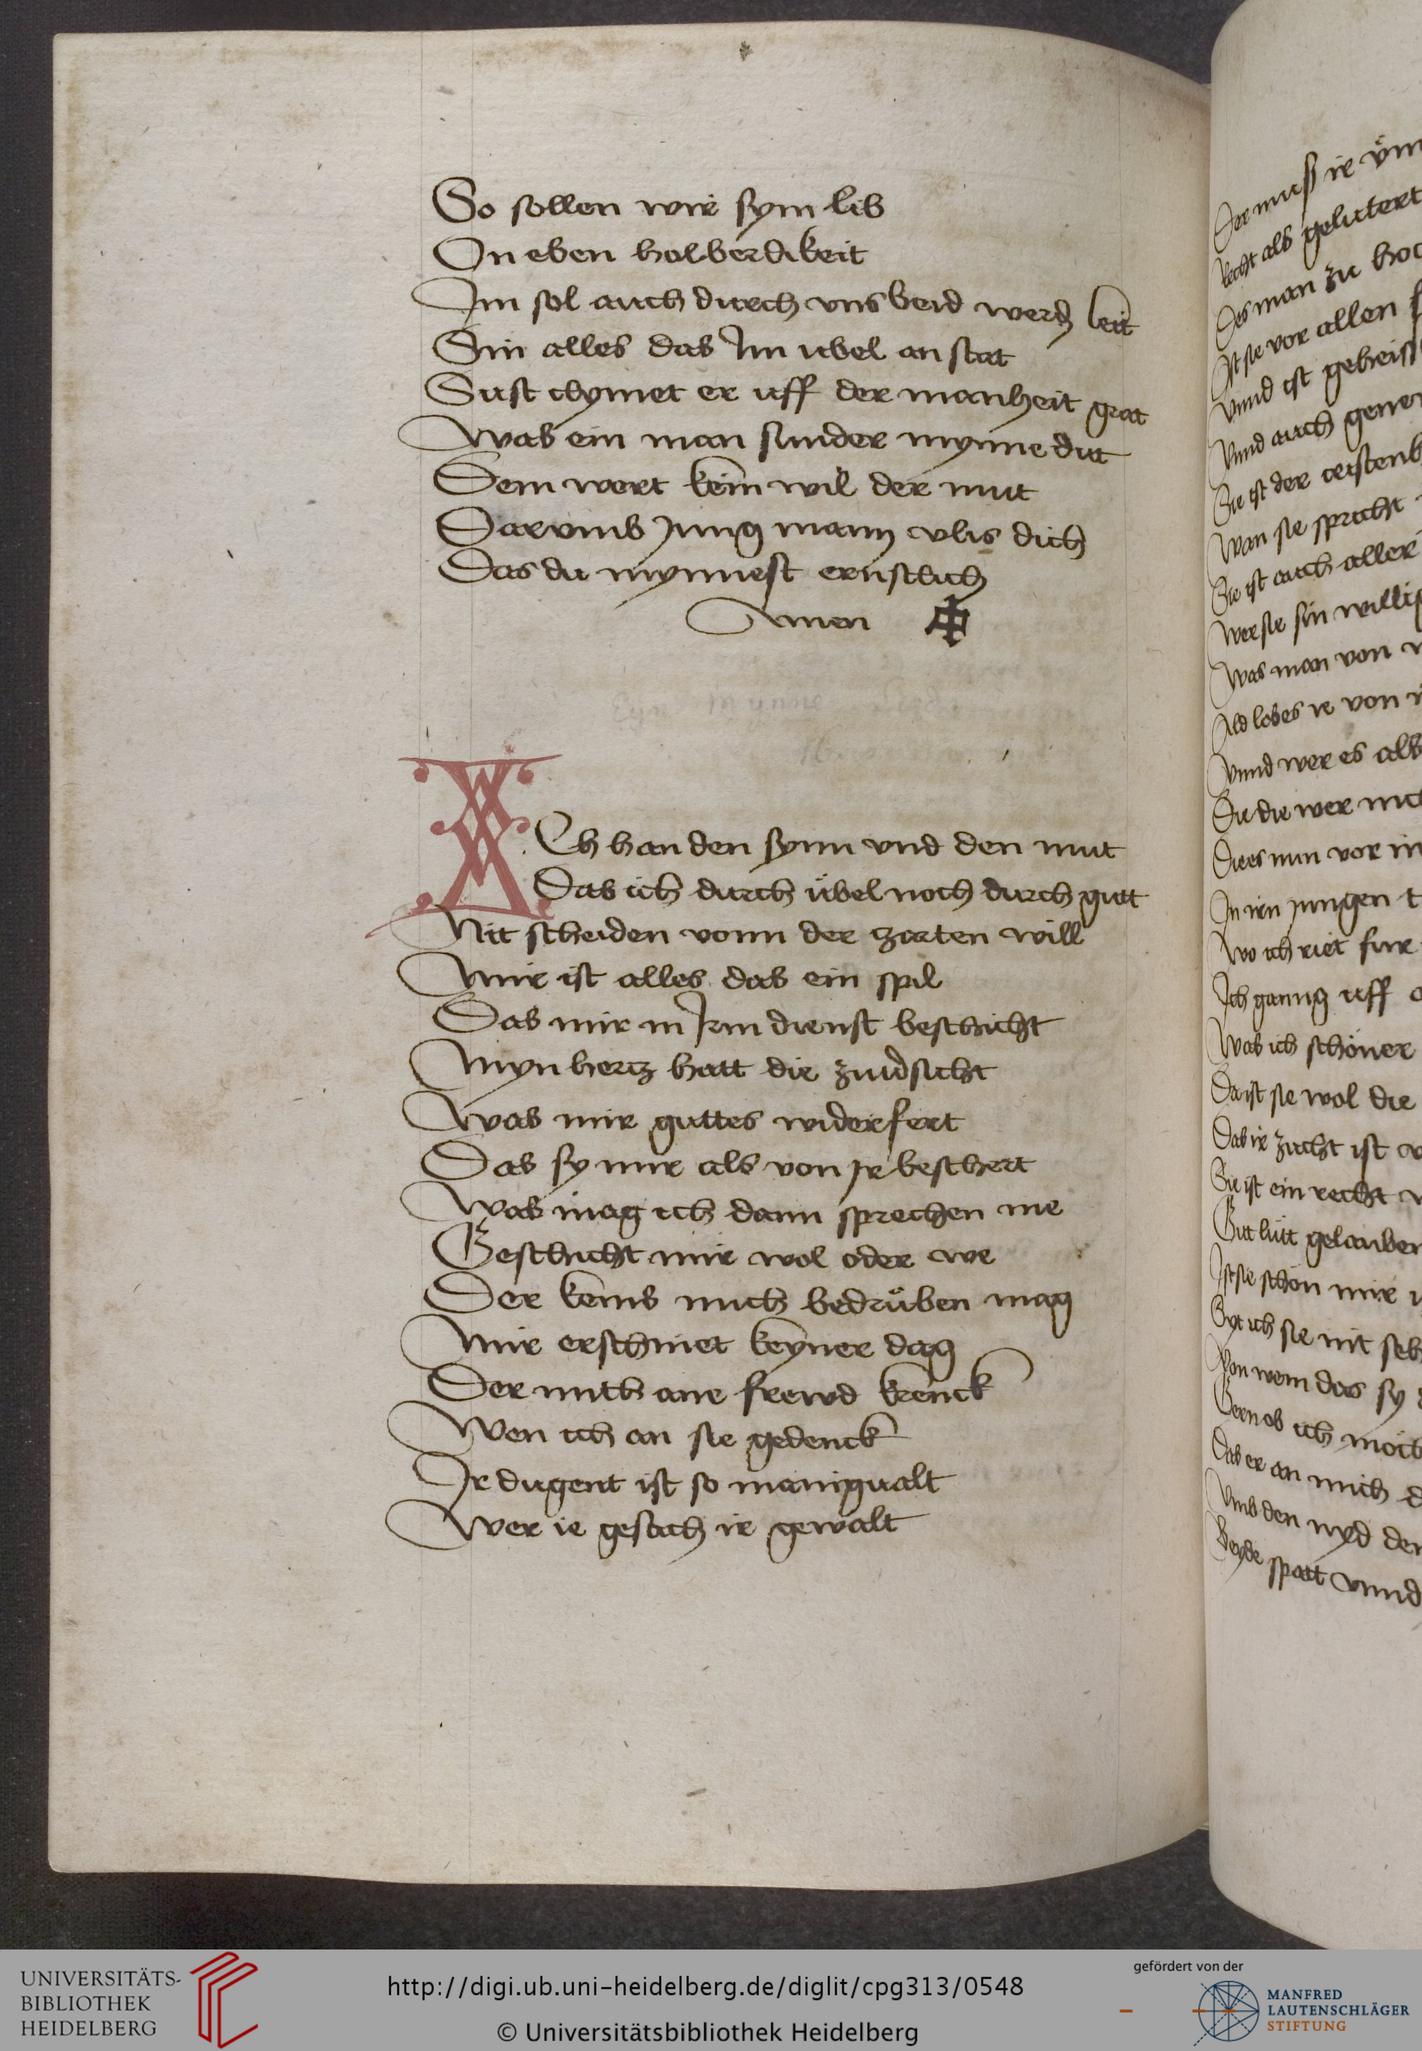 So sollen wir sym lib
In eben holberdikeit
Im sol auch durch vns beid werdn leit
Sin alles das Im ubel an stat
Sust chymet er uff der manheit grat
Was ein man sunder mynne dut
Dem wert keim wil der mut
Darvmb Jung mann vlis dich
Das du mynnest ernstlich
Amen
Ich han den synn vnd den mut
Das ich durch übel noch durch gutt
Nit scheiden vonn der zarten will
Mir ist alles das ein spil
Das mir in Jrm dienst beschicht
Myn hertz hatt die zuuersicht
Was mir guttes widerfert
Das sy mir als von Jr beschert
Was mag ich dann sprechen me
Geschicht mir wol oder we
Der keins mich bedrüben mag
Mir erschinet keyner dag
Der mich ane frewd krenck
Wen ich an sie gedenck
Ir dugent ist so manigualt
Wer ie gesach ir gewalt
Der muß ir
recht als gelutert
Des man zu hoc
Ist sie vor allen
Vnnd ist geheiss
Vnnd auch
Sie ist der
Wan sie spricht
Sie ist auch aller
Wer sie sin willig
Was man von
lobes ie von
Vnnd wer es als
Su die wer
nun vor
In irn jungen
Wo ich riet fur
Ich ganng uff
Was ich schöner
Da ist sie wol die
Das ir zucht ist
Sie ist ein recht
Gut lütt gelauben
Ist sie schön mir
ich sie nit seh
Von wem das sy
Gern ob ich
Das er an mich
Vmb den nyd der
Beyde spatt vnnd
UNIVERSITÄTS-
BIBLIOTHEK
HEIDELBERG
http://digi.ub.uni-heidelberg.de/diglit/cpg313/0548
© Universitätsbibliothek Heidelberg
gefördert von der
MANFRED
LAUTENSCHLÄGER
STIFTUNG